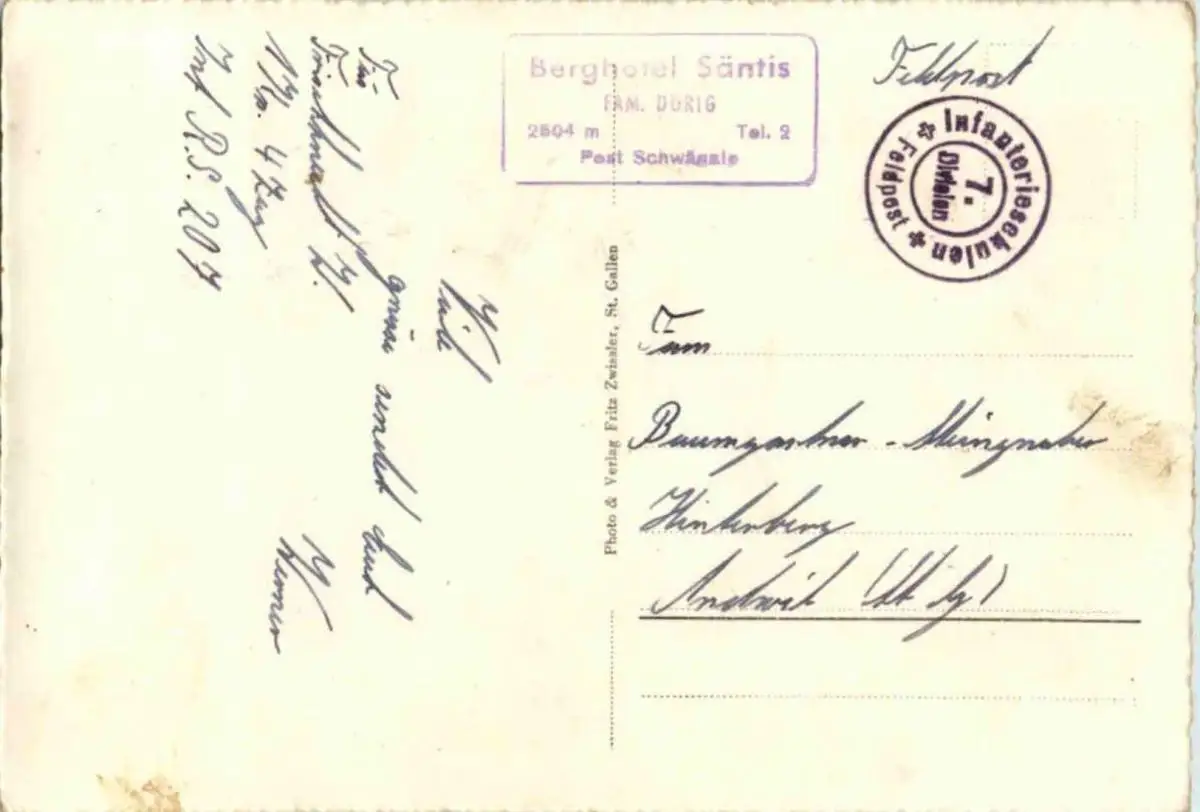 Berghotel Säntis
FAM. DÜRIG
2504 m Tel. 2
Post Schwägalp
Feldpost
Infanterieschulen
7.
Division
Feldpost
Fam
Baumgartner -
Hinterberg
Andwil (St Gg)
Photo & Verlag Fritz Zwissler, St. Gallen
Viele
Grüsse sendet Euch
Werner
Füs
4 Zug
Inf R.S. 207